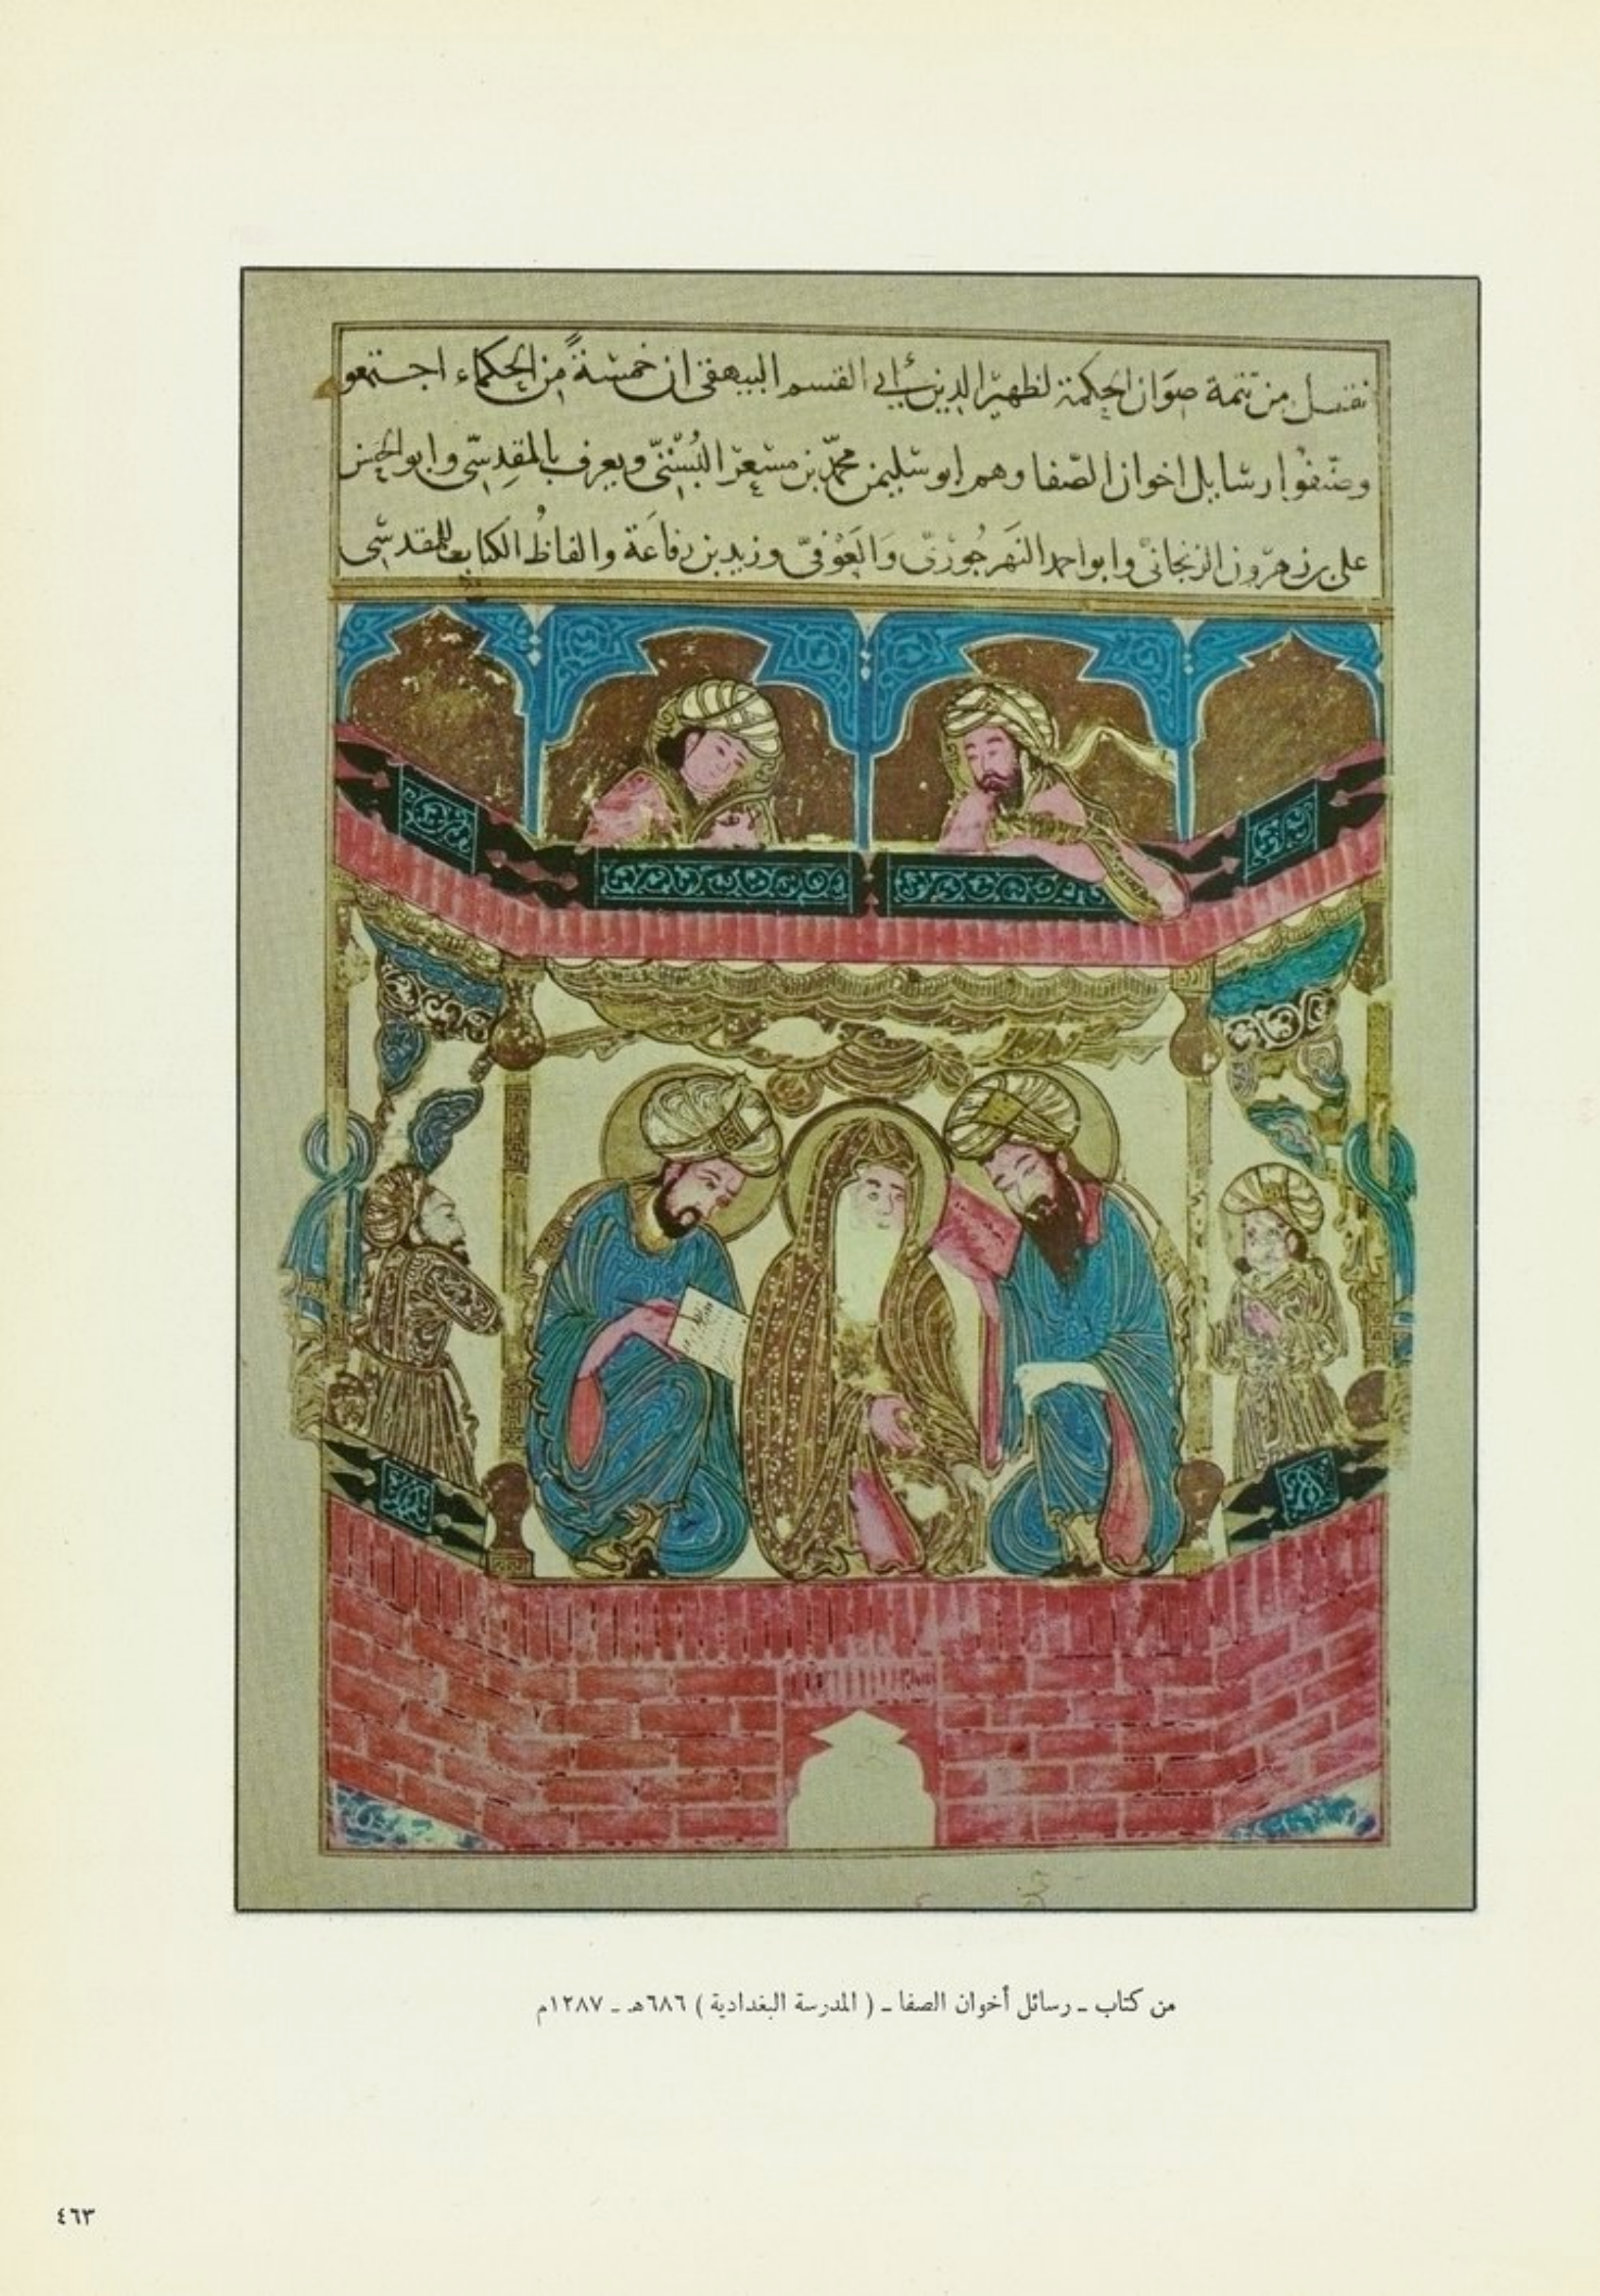 نقل من تتمة صوان الحكمة لظهير الدين أبي القسم البيهقي ان خمسةً من الحكماء اجتمعو
وصنّفوا رسايل اخوان الصّفا وهم ابو سليمن محمّد بن مسعر البُسْتيّ ويعرف بالمقدِسيّ وابو الحسن
علي بن هرون الزنجانيّ وابو احمد النهرجُوريّ والعَوْفيّ وزيد بن رفاعَة والفاظُ الكتاب للمقدسي
من كتاب ـ رسائل أخوان الصفا ـ ( المدرسة البغدادية ) ٦٨٦هـ ـ ١٢٨٧م
٤٦٣